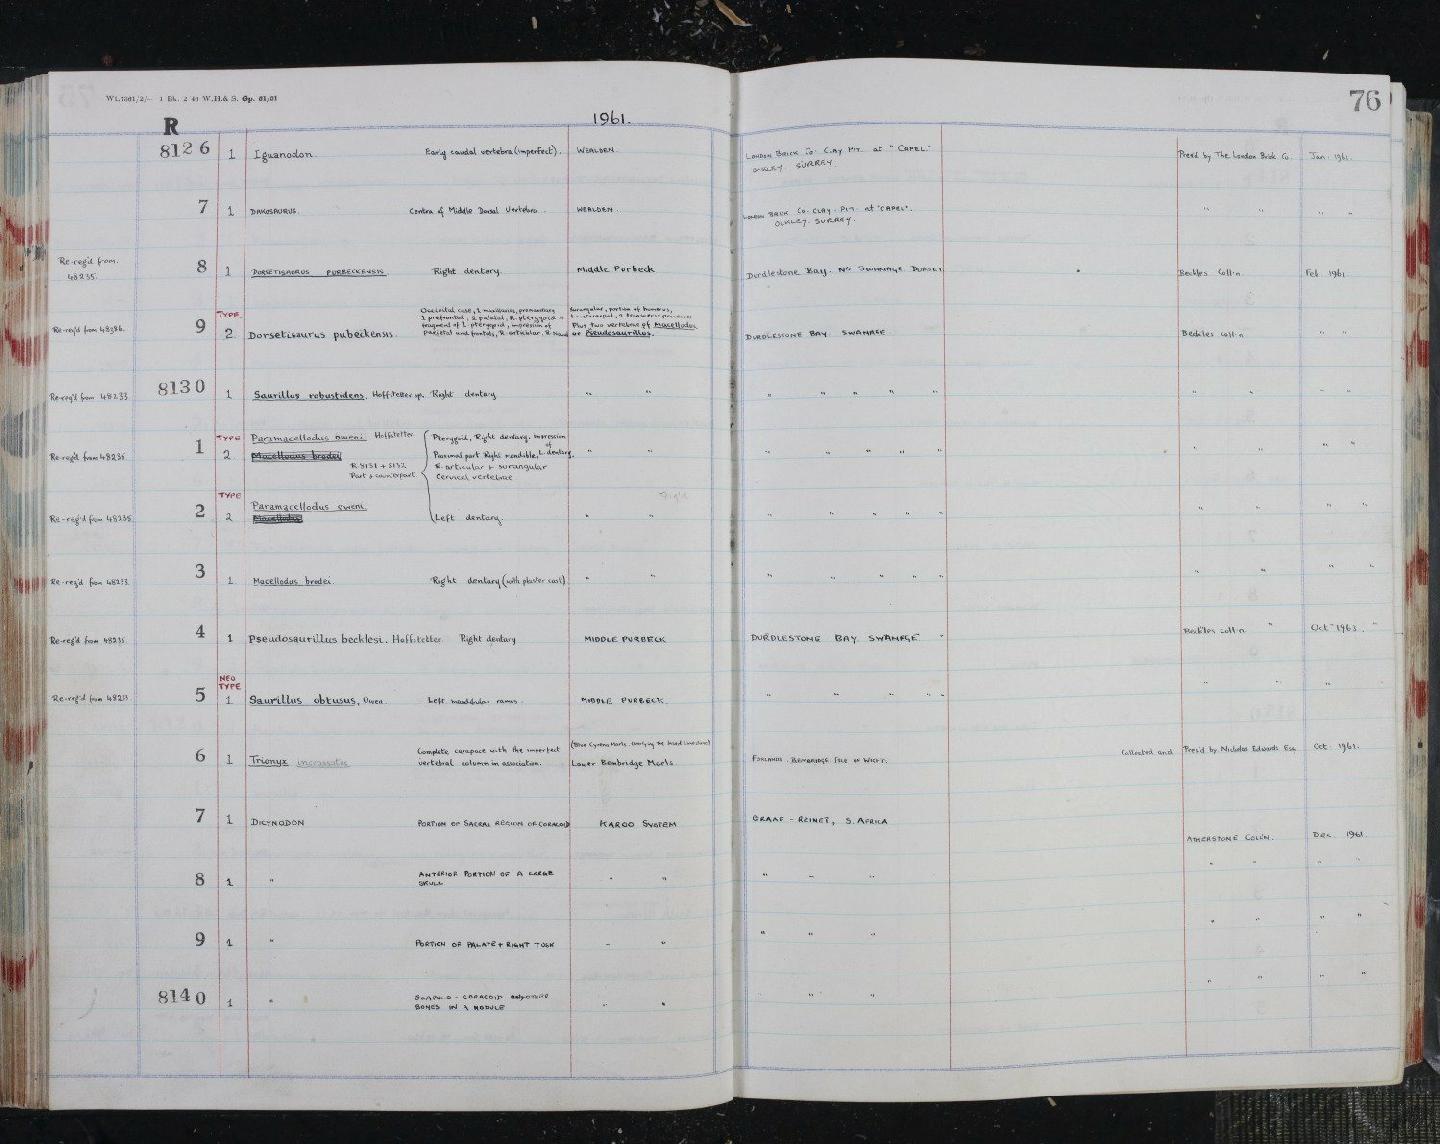 76
Wt.1301/2/— 1 Bk. 2 41 W.H.& S. Gp. 61/01
R 1961.
8126 1 Iguanodon. Early caudal vertebra (imperfect). WEALDEN. LONDON BRICK Co. CLAY PIT. at "CAPEL" Pres'd by The London Brick Co. Jan. 1961.
OKLEY. SURREY.
7 1 DAKOSAURUS. Centra of Middle Dorsal Vertebra. WEALDEN. LONDON BRICK Co. CLAY. PIT. at "CAPEL". " " " "
OCKLEY. SURREY.
Re-reg'd from 48235. 8 1 DORSETISAURUS PURBECKENSIS Right dentary. Middle Purbeck Durdlestone Bay. Nr Swannage Dorset Beckles Coll:n. Feb 1961
TYPE
Occisital case, 2 maxillaries, premaxillary
2 prefrontal, 2 palatal, R. pterygoid +
fragment of L. pterygoid, impression of
parietal and frontals, R. articular, R.
Surangular, portion of humerus,
Plus two vertebrae of Macellodus
or Pseudosaurillus.
Re-reg'd from 48386. 9 2 Dorsetisaurus pubeckensis. DURDLESTONE BAY. SWANAGE Beckles coll:n " "
Re-reg'd from 48233 8130 1 Saurillus robustidens, Hoffstetter sp. Right dentary " " " " " " " " " "
TYPE
Re-reg'd from 48235 1 2 Paramacellodus oweni. Hoffstetter Pterygoid, Right dentary. Impression
of
Macellodus brodei Proximal part Right mandible, L. dentary. " " " " " " " " " "
R.8131 + 8132 R. articular + surangular
Part + counterpart Cervical vertebrae
TYPE
Re-reg'd from 48235 2 2 Paramacellodus oweni.
Macellodus Left dentary. " " " " " " " " " "
Re-reg'd from 48233. 3 1 Macellodus brodei. Right dentary (with plaster cast) " " " " " " " " " "
Re-reg'd from 48235 4 1 Pseudosaurillus becklesi. Hoffstetter Right dentary MIDDLE PURBECK DURDLESTONE BAY. SWANAGE " Beckles coll:n " Oct 1963. "
NEO
TYPE
Re-reg'd from 48233 5 1 Saurillus obtusus, Owen. Left mandibular ramus. MIDDLE PURBECK. " " " " " " " "
6 1 Trionyx incrassatus Complete carapace with the imperfect
vertebral column in association. (Blue Cyrena Marls. overlying the Insect Limestone)
Lower Bembridge Marls FORLANDS. BEMBRIDGE ISLE OF WIGHT. Collected and Pres'd by Nicholas Edwards Esq. Oct. 1961.
7 1 DICYNODON PORTION OF SACRAL REGION OR CORACOID KAROO SYSTEM GRAAF - REINET, S. AFRICA ATHERSTONE COLL'N. Dec. 1961
8 1 " ANTERIOR PORTION OF A LARGE
SKULL " " " " " " " " "
9 1 " PORTION OF PALATE + RIGHT TUSK " " " " " " " " "
8140 1 " SCAPULO - CORACOID
BONES IN A NODULE " " " " " " " "